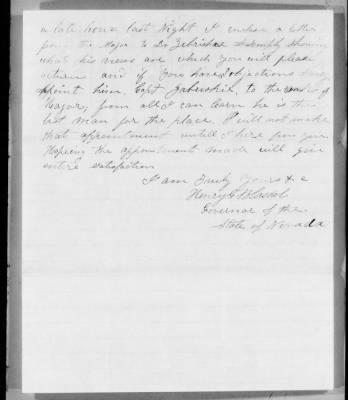 a late hour last Night I enclose a letter
from the Major to Dr Zabriskie Simply showing
what his views are which you will please
return and if You have objections
point him, Capt Zabriskie, to the
Major, from all I can learn he is the
best man for the place. I will not make
that appointment untill I here from you
Hopeing the appointment made will give
entire satisfaction
I am Truly Yours &c
Henry G Blasdel
Governor of the
State of Nevada